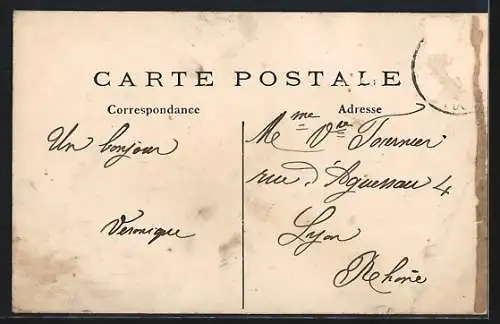 CARTE POSTALE
Correspondance
Adresse
Un bonjour
Veronique
Mme Vve Tournier
rue d'Aguesseau 4
Lyon
Rhône